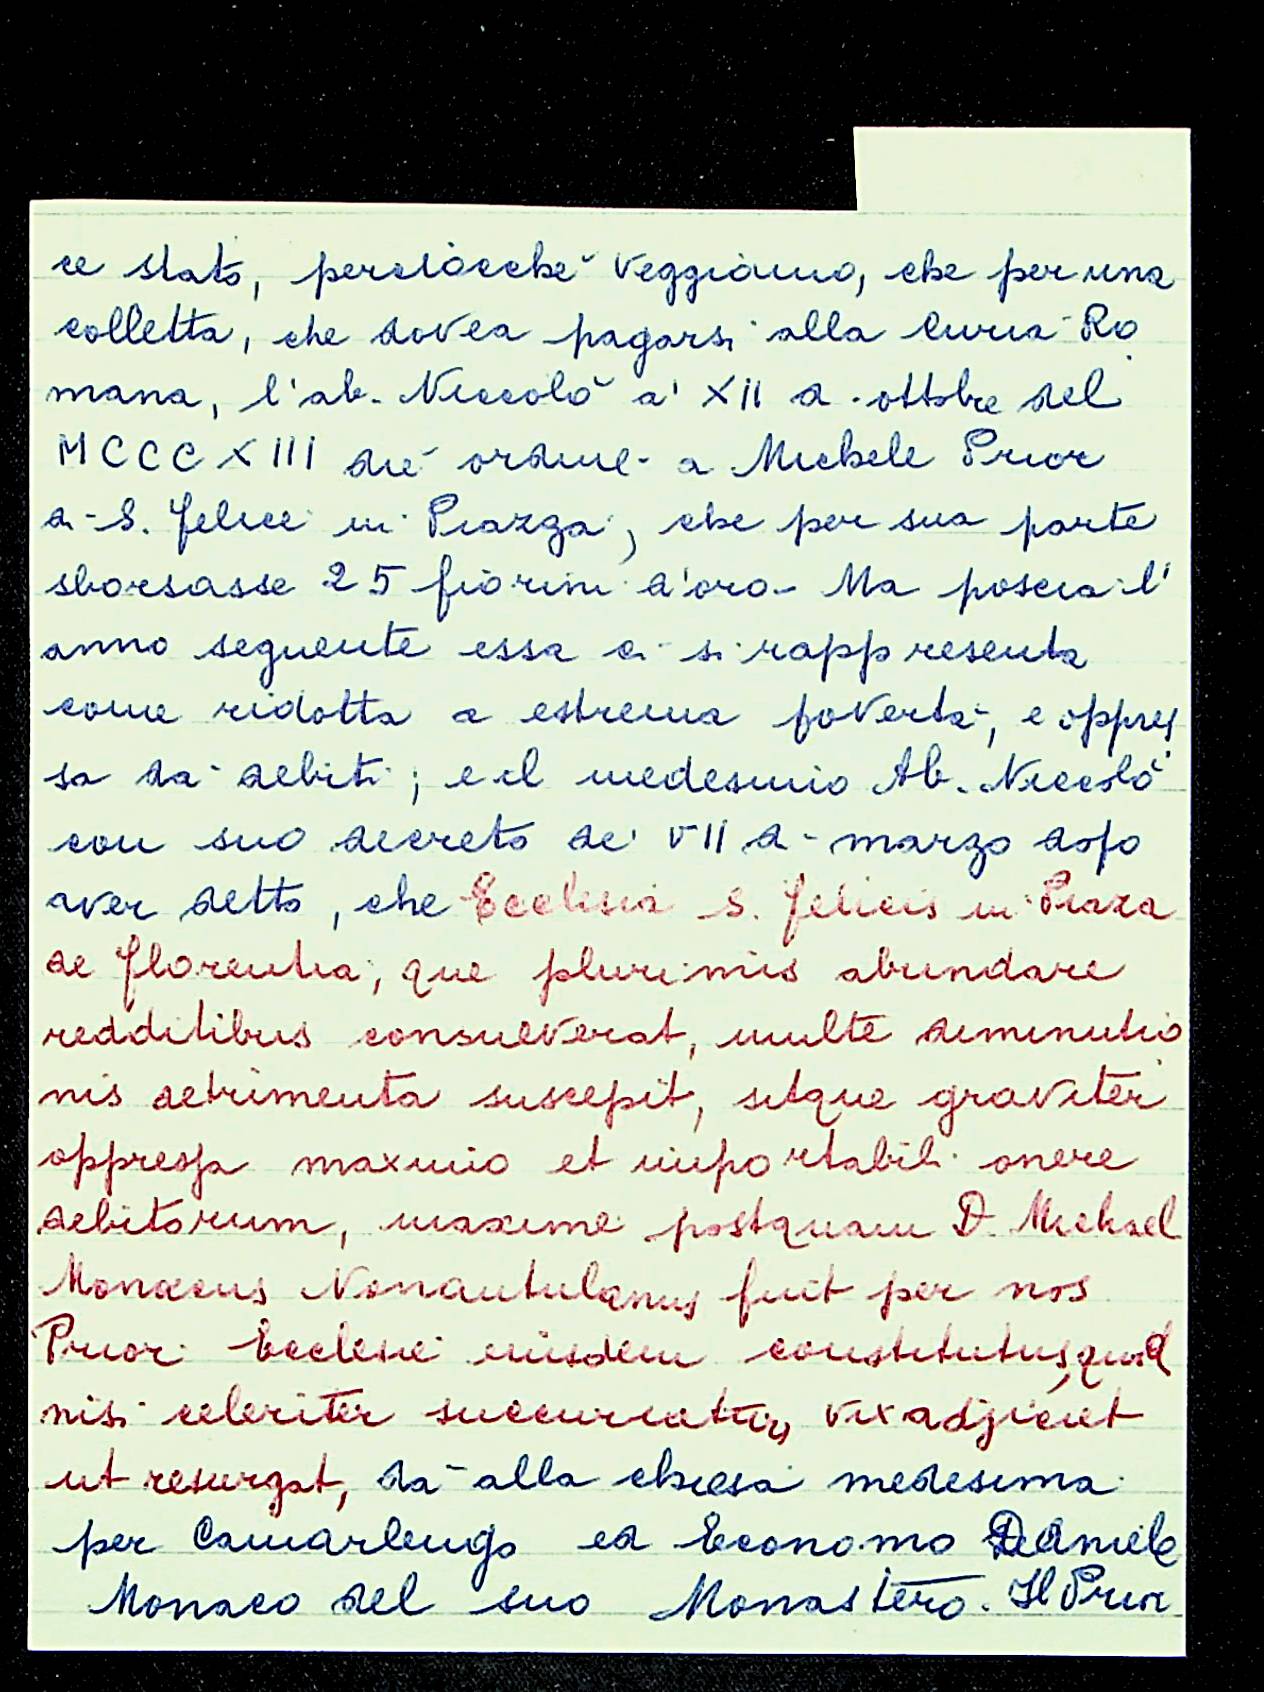 ce stato, perciòcchè veggiamo, che per una
colletta, che dovea pagarsi alla Curia Ro
mana, l'ab. Niccolò a' XII di ottobre del
MCCCXIII diè ordine a Michele Prior
di S. Felice in Piazza, che per sua parte
sborsasse 25 fiorini d'oro. Ma poscia l'
anno seguente essa ci si rappresenta
come ridotta a estrema povertà, e oppres
sa da debiti; e il medesimo Ab. Niccolò
con suo decreto de' VII di marzo dopo
aver detto, che Ecclesia S. Felicis in Piaza
de Florentia, que plurimis abundare
redditibus consueverat, multe diminutio
nis detrimenta suscepit, sitque graviter
oppressa maximo et importabili onere
debitorum, maxime postquam D. Michael
Monacus Nonantulanus fuit per nos
Prior Ecclesie eiusdem constitutus, quod
nisi celeriter succurratur, vix adjiciet
ut resurgat, dà alla chiesa medesima
per Camarlengo ed Economo Daniele
Monaco del suo Monastero. Il Prior